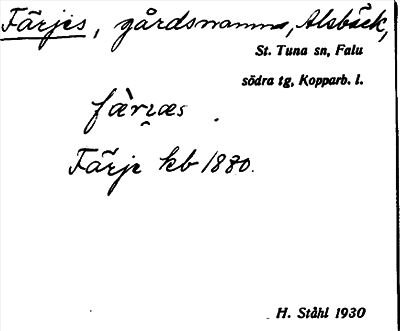 Färjes, gårdsnamn, Alsbäck,
St. Tuna sn, Falu
södra tg, Kopparb. l.
fä̀rɩæs .
Färje kb 1880.
H. Ståhl 1930